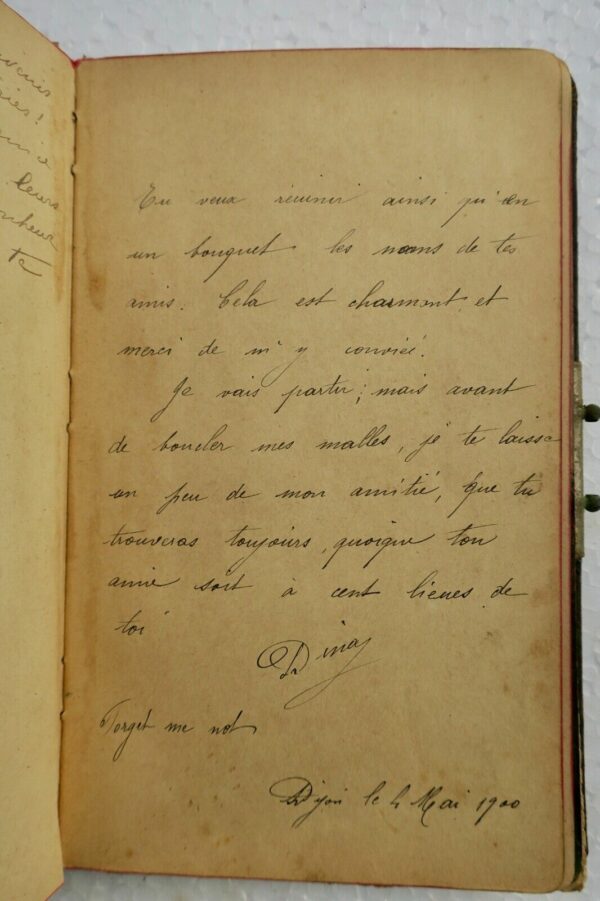 venirs
ies !
leurs
nheur
te
Tu veux réunir ainsi qu'en
un bouquet les noms de tes
amis. Cela est charmant et
merci de m'y convier.
Je vais partir ; mais avant
de boucler mes malles, je te laisse
un peu de mon amitié, que tu
trouveras toujours, quoique ton
amie soit à cent lieues de
toi
Dina
Forget me not
Dijon le 4 Mai 1900